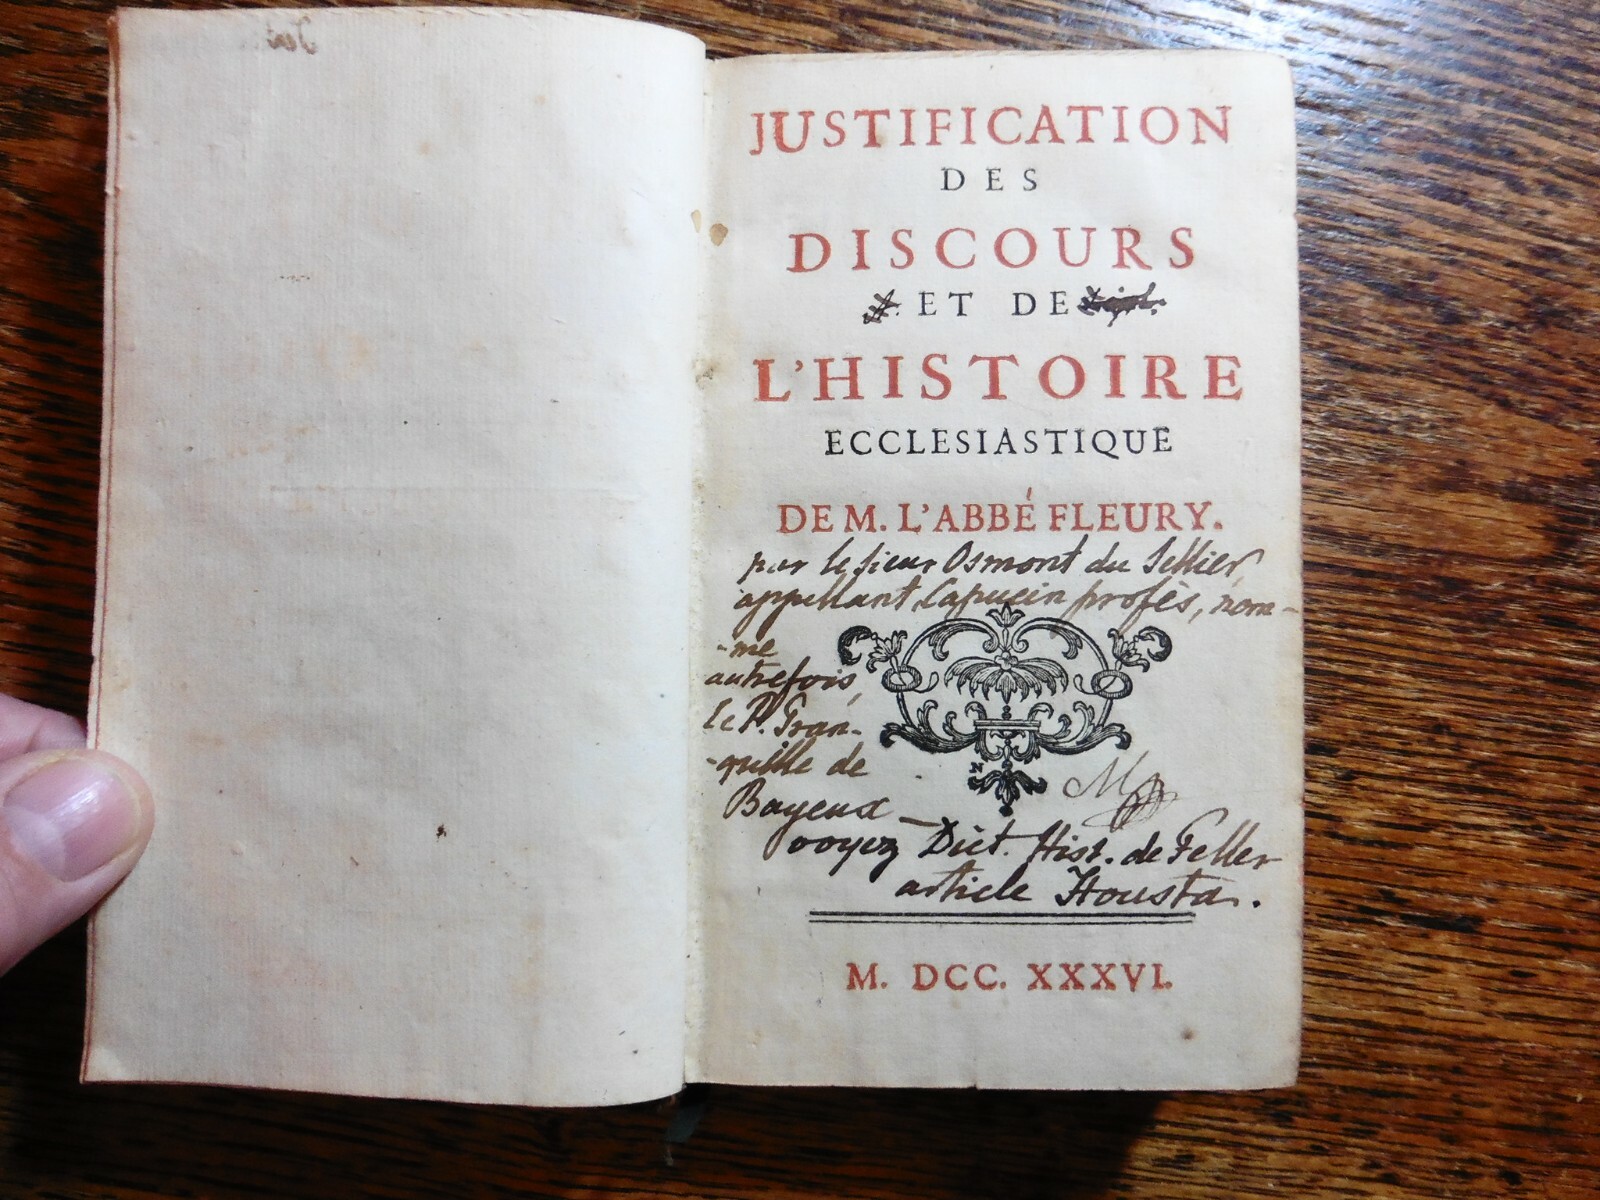 JUSTIFICATION
DES
DISCOURS
ET DE
L'HISTOIRE
ECCLESIASTIQUE
DE M. L'ABBÉ FLEURY.
par le sieur Osmont du Sellier,
appellant, Capucin profès, nom-
-mé
autrefois,
le P. Tran-
-quille de
Bayeux —
voyez Dict. Hist. de Feller
article Housta.
M. DCC. XXXVI.